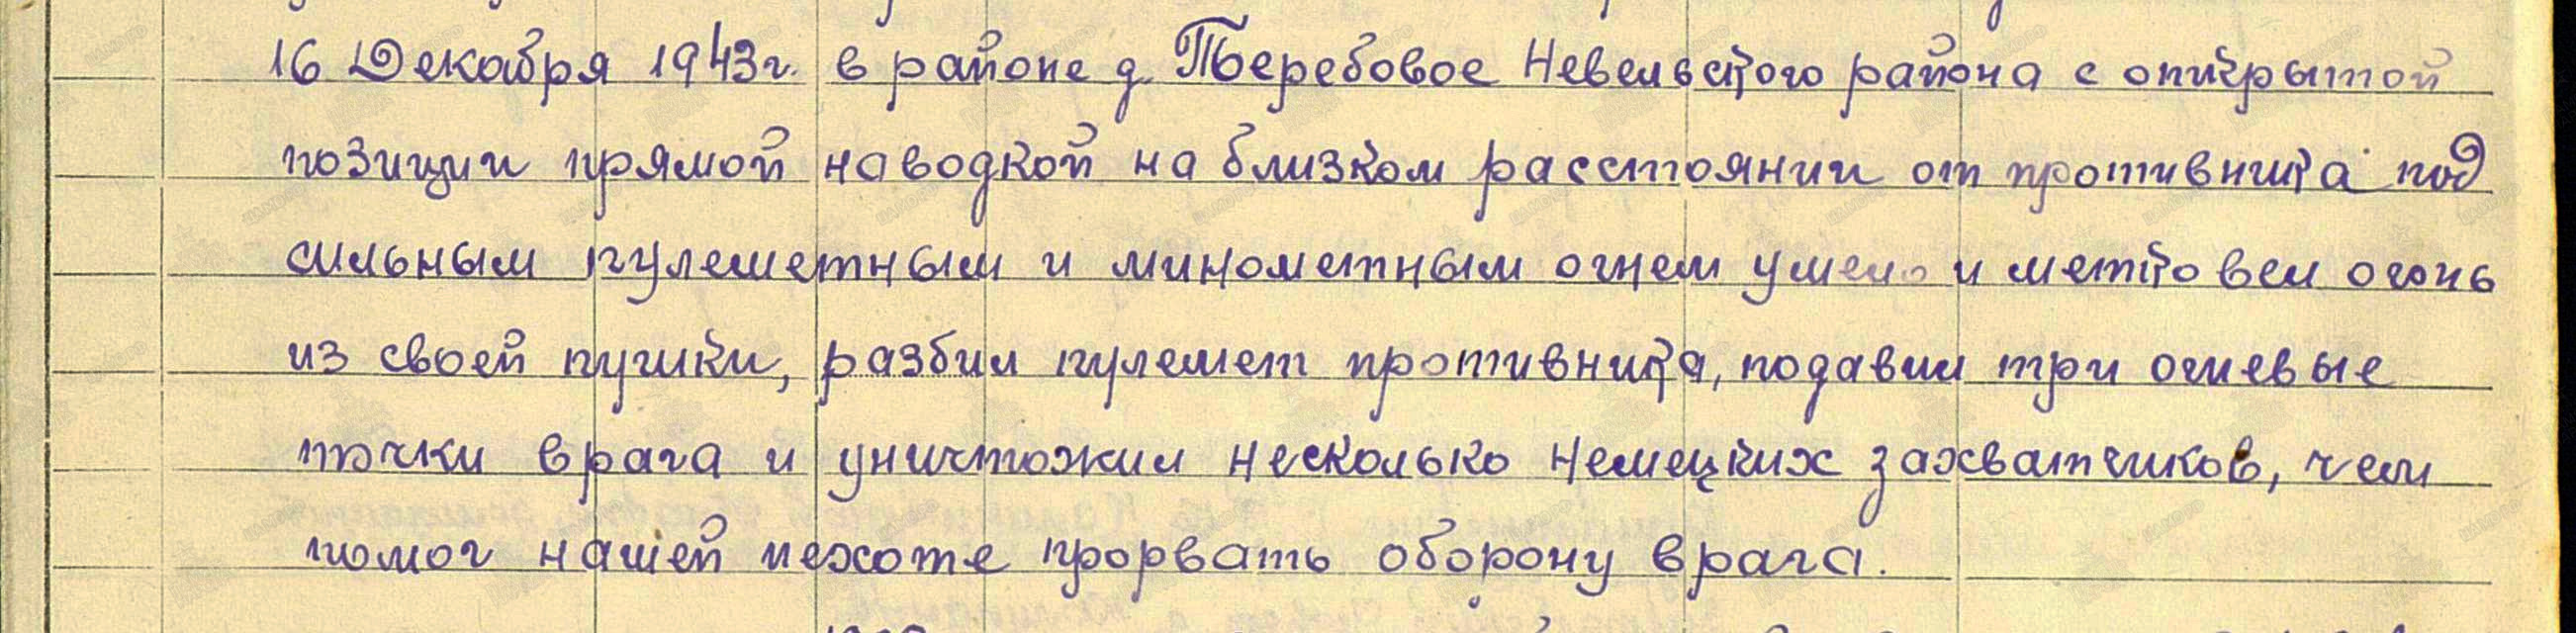 16 Декабря 1943г. в районе д. Теребовое Невельского района с открытой
позиции прямой наводкой на близком расстоянии от противника под
сильным пулеметным и минометным огнем умело и метко вел огонь
из своей пушки, разбил пулемет противника, подавил три огневые
точки врага и уничтожил несколько немецких захватчиков, чем
помог нашей пехоте прорвать оборону врага.